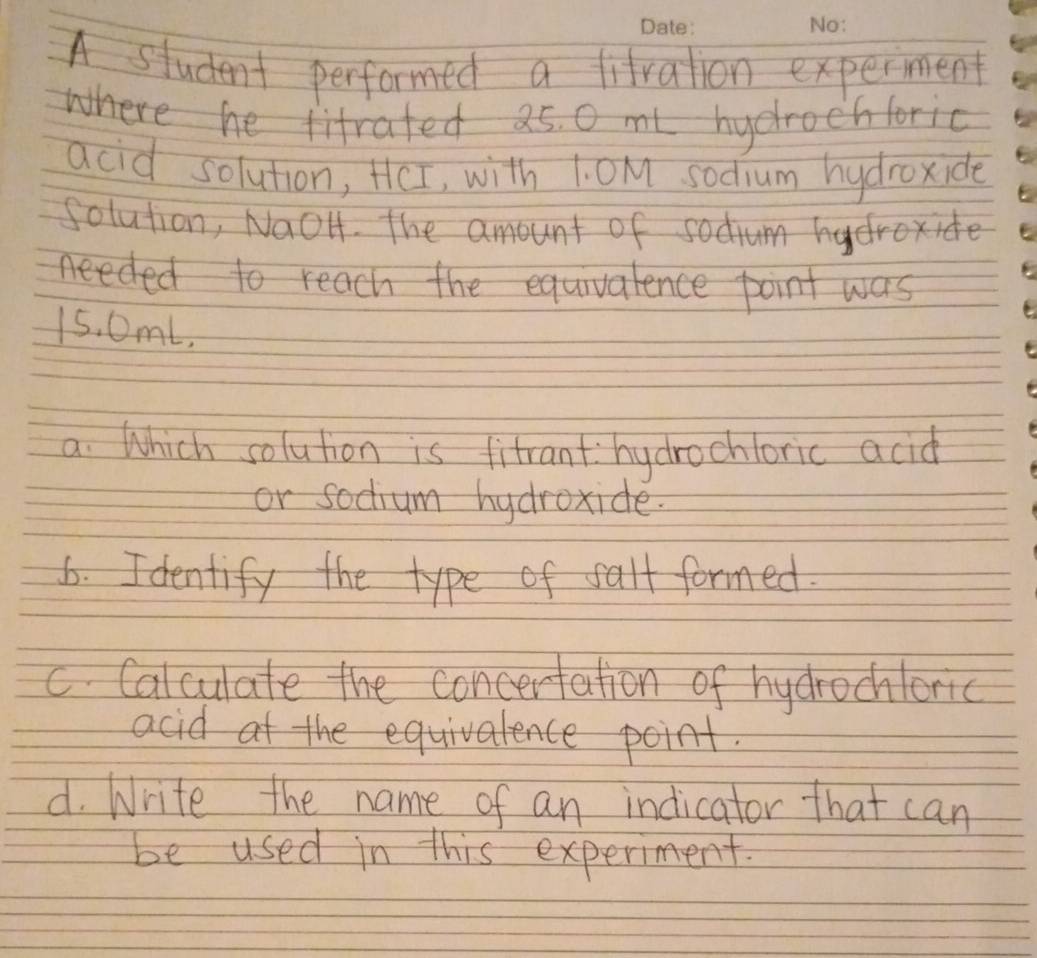 Date: No:
A student performed a titration experiment
where he titrated 25.0 mL hydrochloric
acid solution, HCI, with 1.0M sodium hydroxide
solution, NaOH. The amount of sodium hydroxide
needed to reach the equivalence point was
15.0mL.
a. Which solution is titrant: hydrochloric acid
or sodium hydroxide.
b. Identify the type of salt formed.
c. Calculate the concertation of hydrochloric
acid at the equivalence point.
d. Write the name of an indicator that can
be used in this experiment.